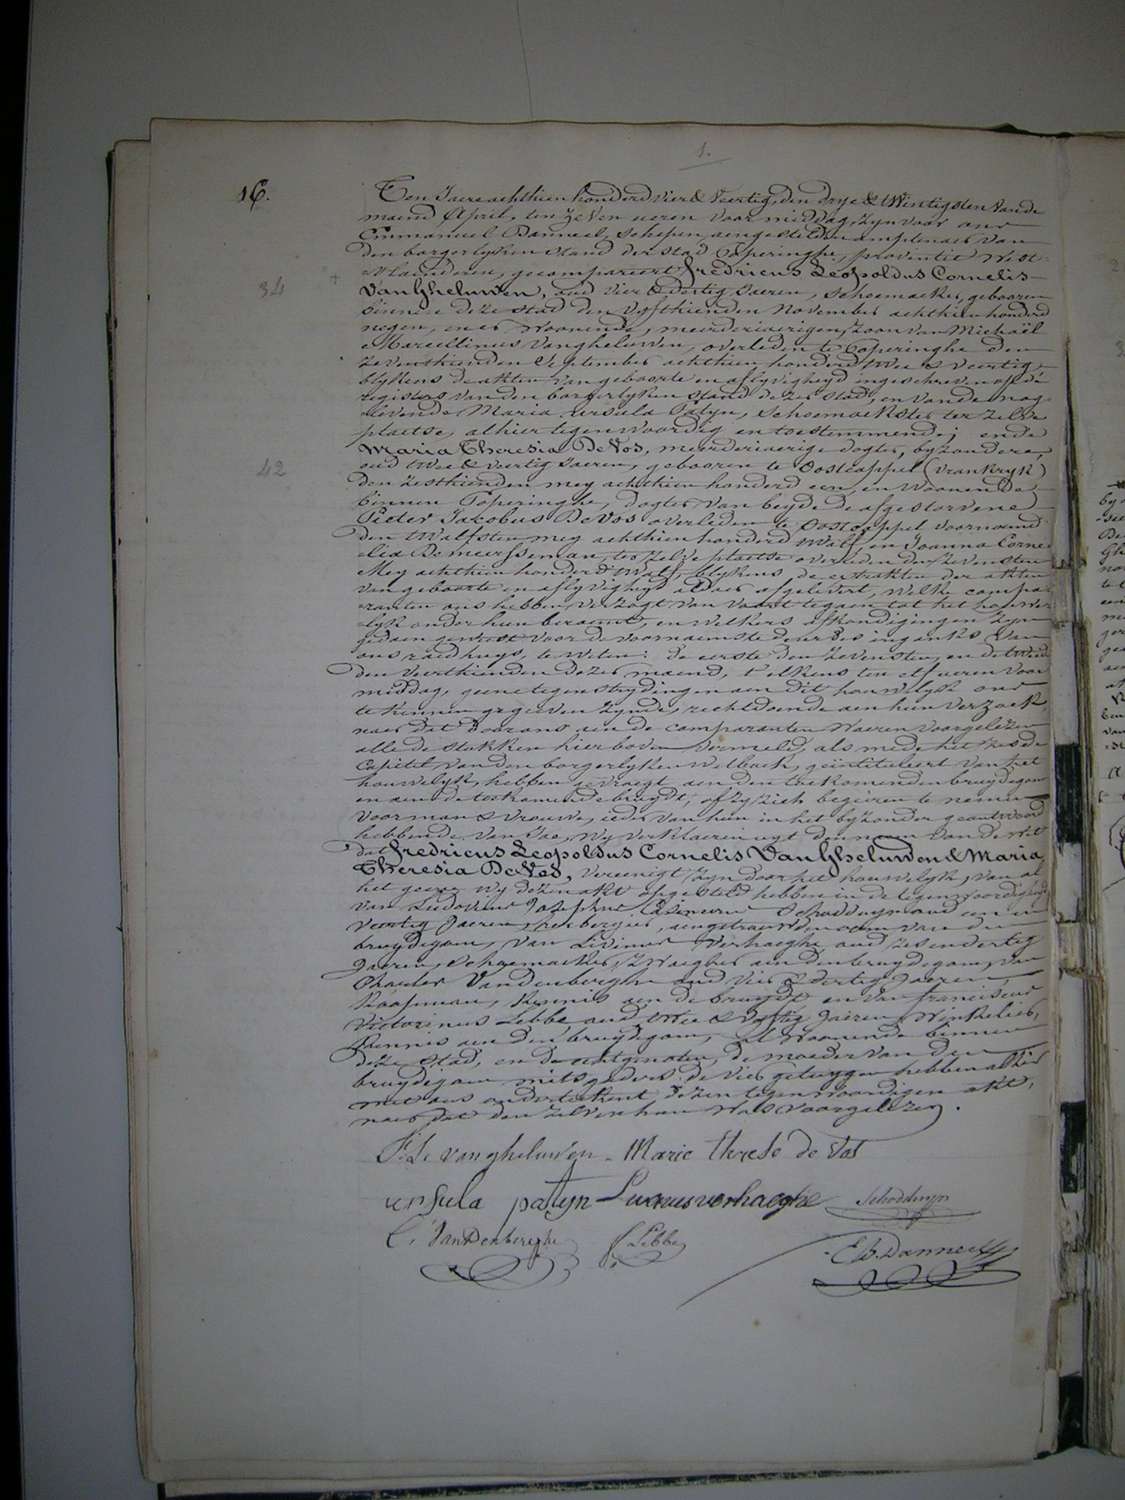 1.
16.
Ten Jaere achthien honderd vier & veertig, den drye & twintigsten van de
maend April, ten zeven ueren voor middag, zyn voor ons
Emmanuel Danneel, Schepen, aengestelden amptenaer van
den borgerlyken stand der stad Poperinghe, provintie West-
Vlaenderen, gecompareert Fredricus Leopoldus Cornelis
34 +
VanGheluwen, oud vier & dertig Jaeren, schoemaeker, gebooren
binnen deze stad den vyfthienden November achthien honderd
negen, en er woonende, meerderjaerigen zoon van Michaël
Marcellinus Vangheluwen, overleden te Poperinghe den
zeventhienden September achthien honderd twee & veertig,
blykens de akten van geboorte en aflyvigheyd ingeschreven op de
registers van den borgerlyken stand dezer stad, en van de nog
levende Maria Ursula Patyn, schoemaekster ter zelve
plaetse, alhier tegenwoordig en toestemmende; ende
Maria Theresia DeVos, meerderjaerige dogter, byzondere,
42
oud twee & veertig Jaeren, gebooren te Oostcappel (Vrankryk)
den zesthienden mey achthien honderd een, en woonende
binnen Poperinghe, dogter van beyde de afgestorvene
Pieter Jacobus DeVos overleden te Oostcappel voornoemd
den twalfsten mey achthien honderd twalf, en Joanna Corne-
lia Demeersseman, ter zelve plaetse overleden den zevensten
Mey achthien honderd twalf, blykens de extrakten der akten
van geboorte en aflyvigheyd aldaer afgelevert, welke compa-
ranten ons hebben verzogt van voort te gaen tot het houwe-
lyk onder hun beraemt, en welkers afkondigingen zyn
gedaen geweest voor de voornaemste deure des ingangs van
ons raedhuys, te weten: de eerste den zevensten, en de tweede
den veerthienden dezer maend, telkens ten elf ueren voor
middag, geene tegenstrydingen aen dit houwelyk ons
te kennen gegeven zynde, rechtdoende aen hun verzoek
naer dat door ons aen de comparanten waeren voorgelezen
alle de stukken hier boven vermeld, als mede het zesde
Capittel van den borgerlyken Wetboek, geïntituleert van het
houwelyk, hebben gevraegt aen den toekomenden bruydegom
en aen de toekomende bruydt, of zy zich begeren te nemen
voor man & vrouwe, ieder van hun in het byzonder geantwoord
hebbende van Jae, Wy verklaeren uyt den naem van de wet
dat Fredricus Leopoldus Cornelis VanGheluwen & Maria
Theresia DeVos, vereenigt zyn door het houwelyk, van al
het geene wy dezen akt opgesteld hebben in de tegenwoordigheyd
van Ludovicus Josephus Schoddeyn oud een en
veertig Jaeren, herbergier, aengetrouwden oom van den
bruydegom, van Livinus Verhaeghe, oud zes en dertig
Jaeren, Schoemaeker, zwaeger aen den bruydegom, van
Charles Vandenberghe oud vier & dertig Jaeren,
Koopman, kennis aen de bruydt en van Franciscus
Victorinus Lebbe oud twee & vyftig Jaeren, Winkelier,
kennis aen den bruydegom, al woonende binnen
deze stad, en de echtgenoten, de moeder van den
bruydegom mitsgaders de vier getuygen hebben alhier
met ons onderteekent dezen tegenwoordigen akt,
naer dat den zelven hun was voorgelezen.
F. L. vangheluwen - Marie therese de vos
ursula patyn Livinus verhaeghe Schoddeyn
C. VanDenberghe F Lebbe
E B. Danneel